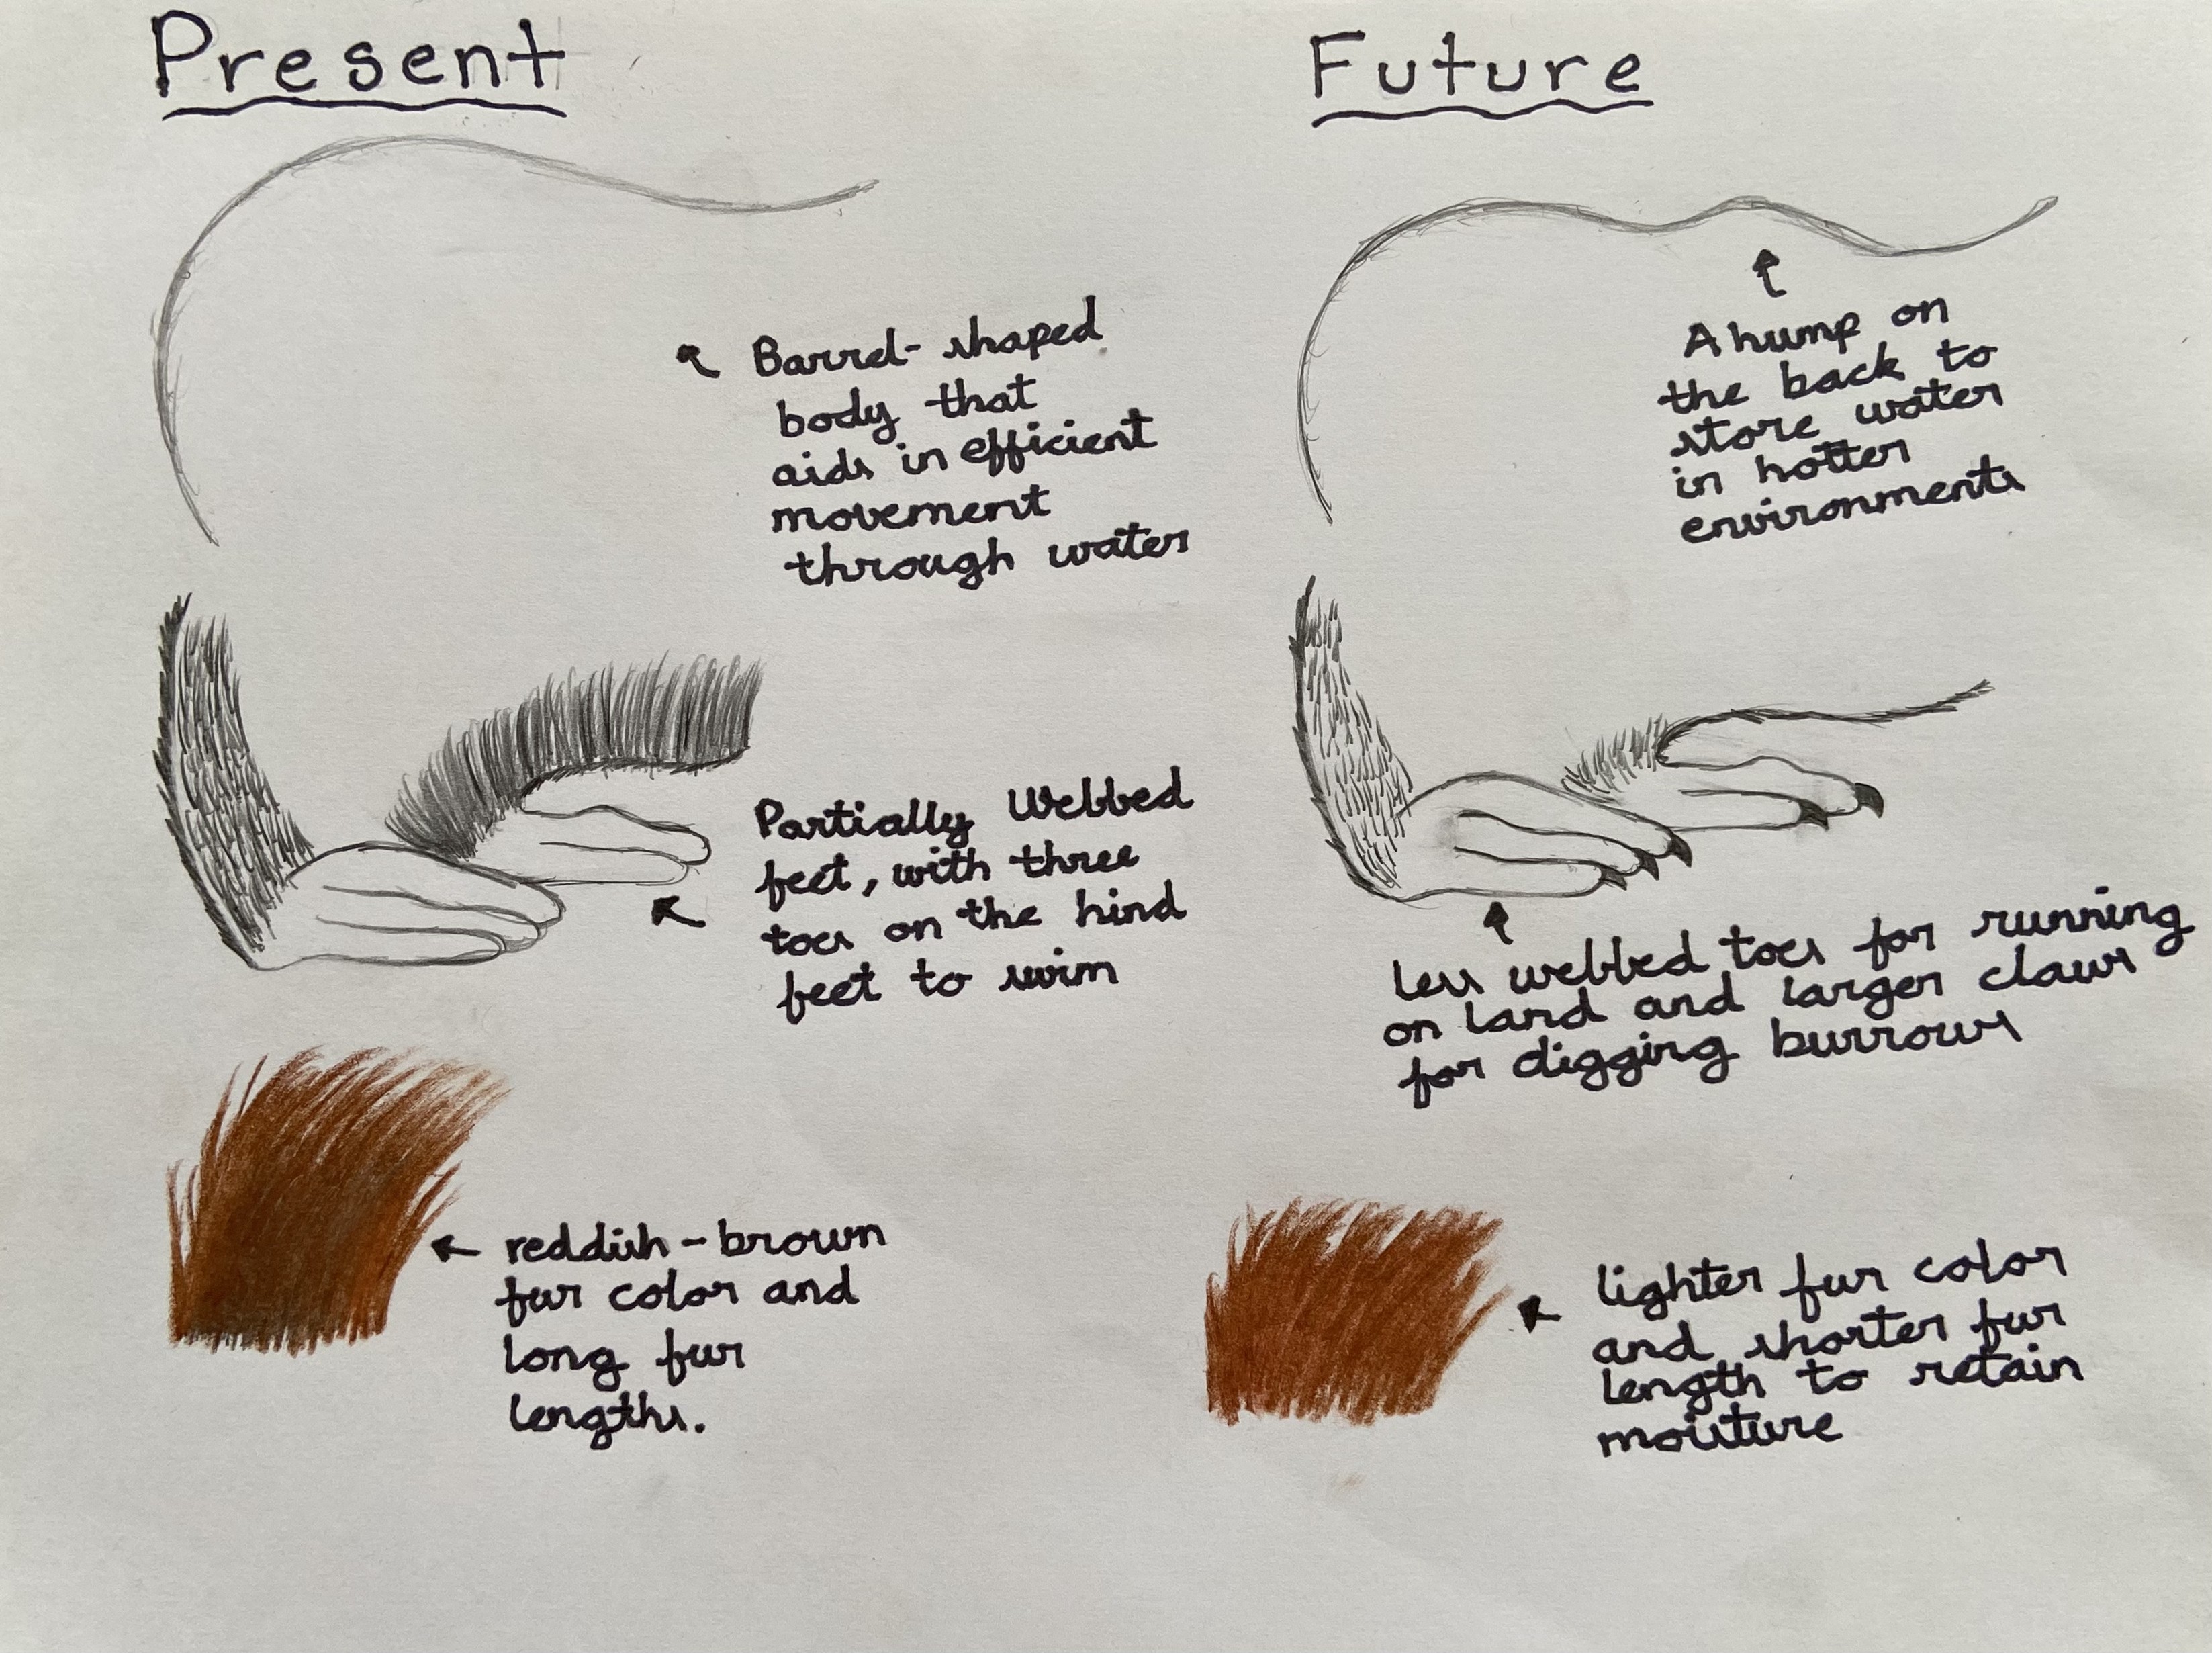 Present
Barrel-shaped
body that
aids in efficient
movement
through water
Partially Webbed
feet, with three
toes on the hind
feet to swim
reddish-brown
fur color and
long fur
lengths.
Future
A hump on
the back to
store water
in hotter
environments
Less webbed toes for running
on land and larger claws
for digging burrows
lighter fur color
and shorter fur
length to retain
moisture